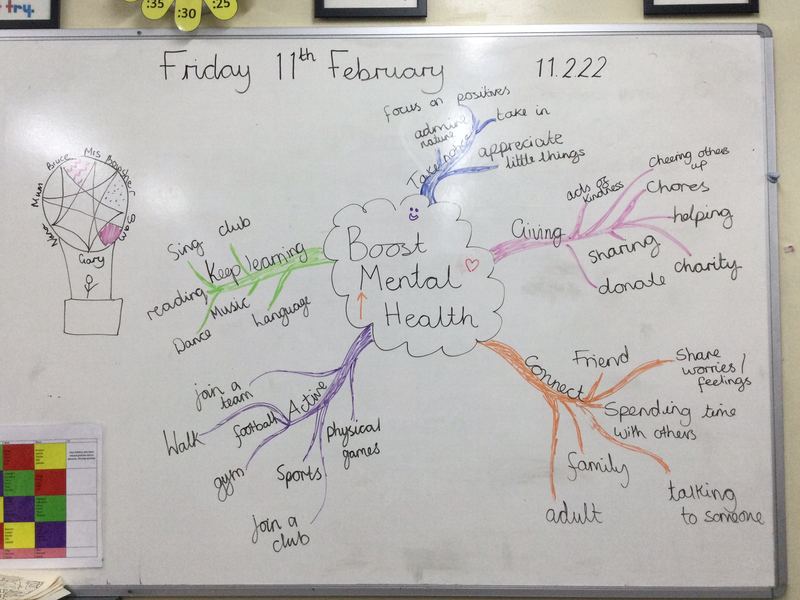 try.
:35
:30
:25
Friday 11th February
11.2.22
focus on positives
admire
nature
take in
Take notice
appreciate
little things
Boost
Mental
Health
Giving
acts of
kindness
cheering others
up
Chores
helping
sharing
charity
donate
Connect
Friend
Share
worries/
feelings
Spending time
with others
family
talking
to someone
adult
Active
join a
team
Walk
football
gym
Sports
physical
games
join a
club
Keep learning
Sing
club
reading
Music
Dance
Language
Bruce
Mum
Nana
Gary
Sam